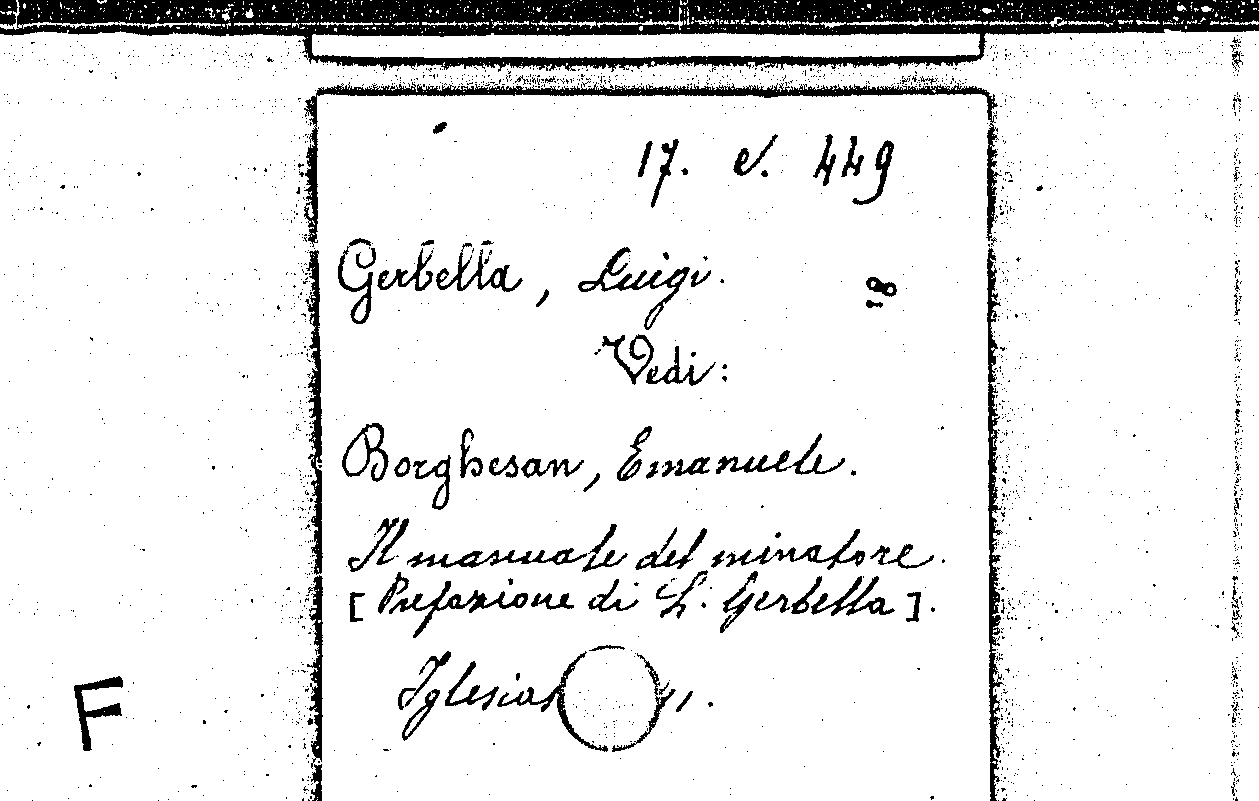 17. e. 449
Gerbella, Luigi.
18
Vedi:
Borghesan, Emanuele.
Il manuale del minatore.
[Prefazione di L. Gerbella].
Iglesias
F